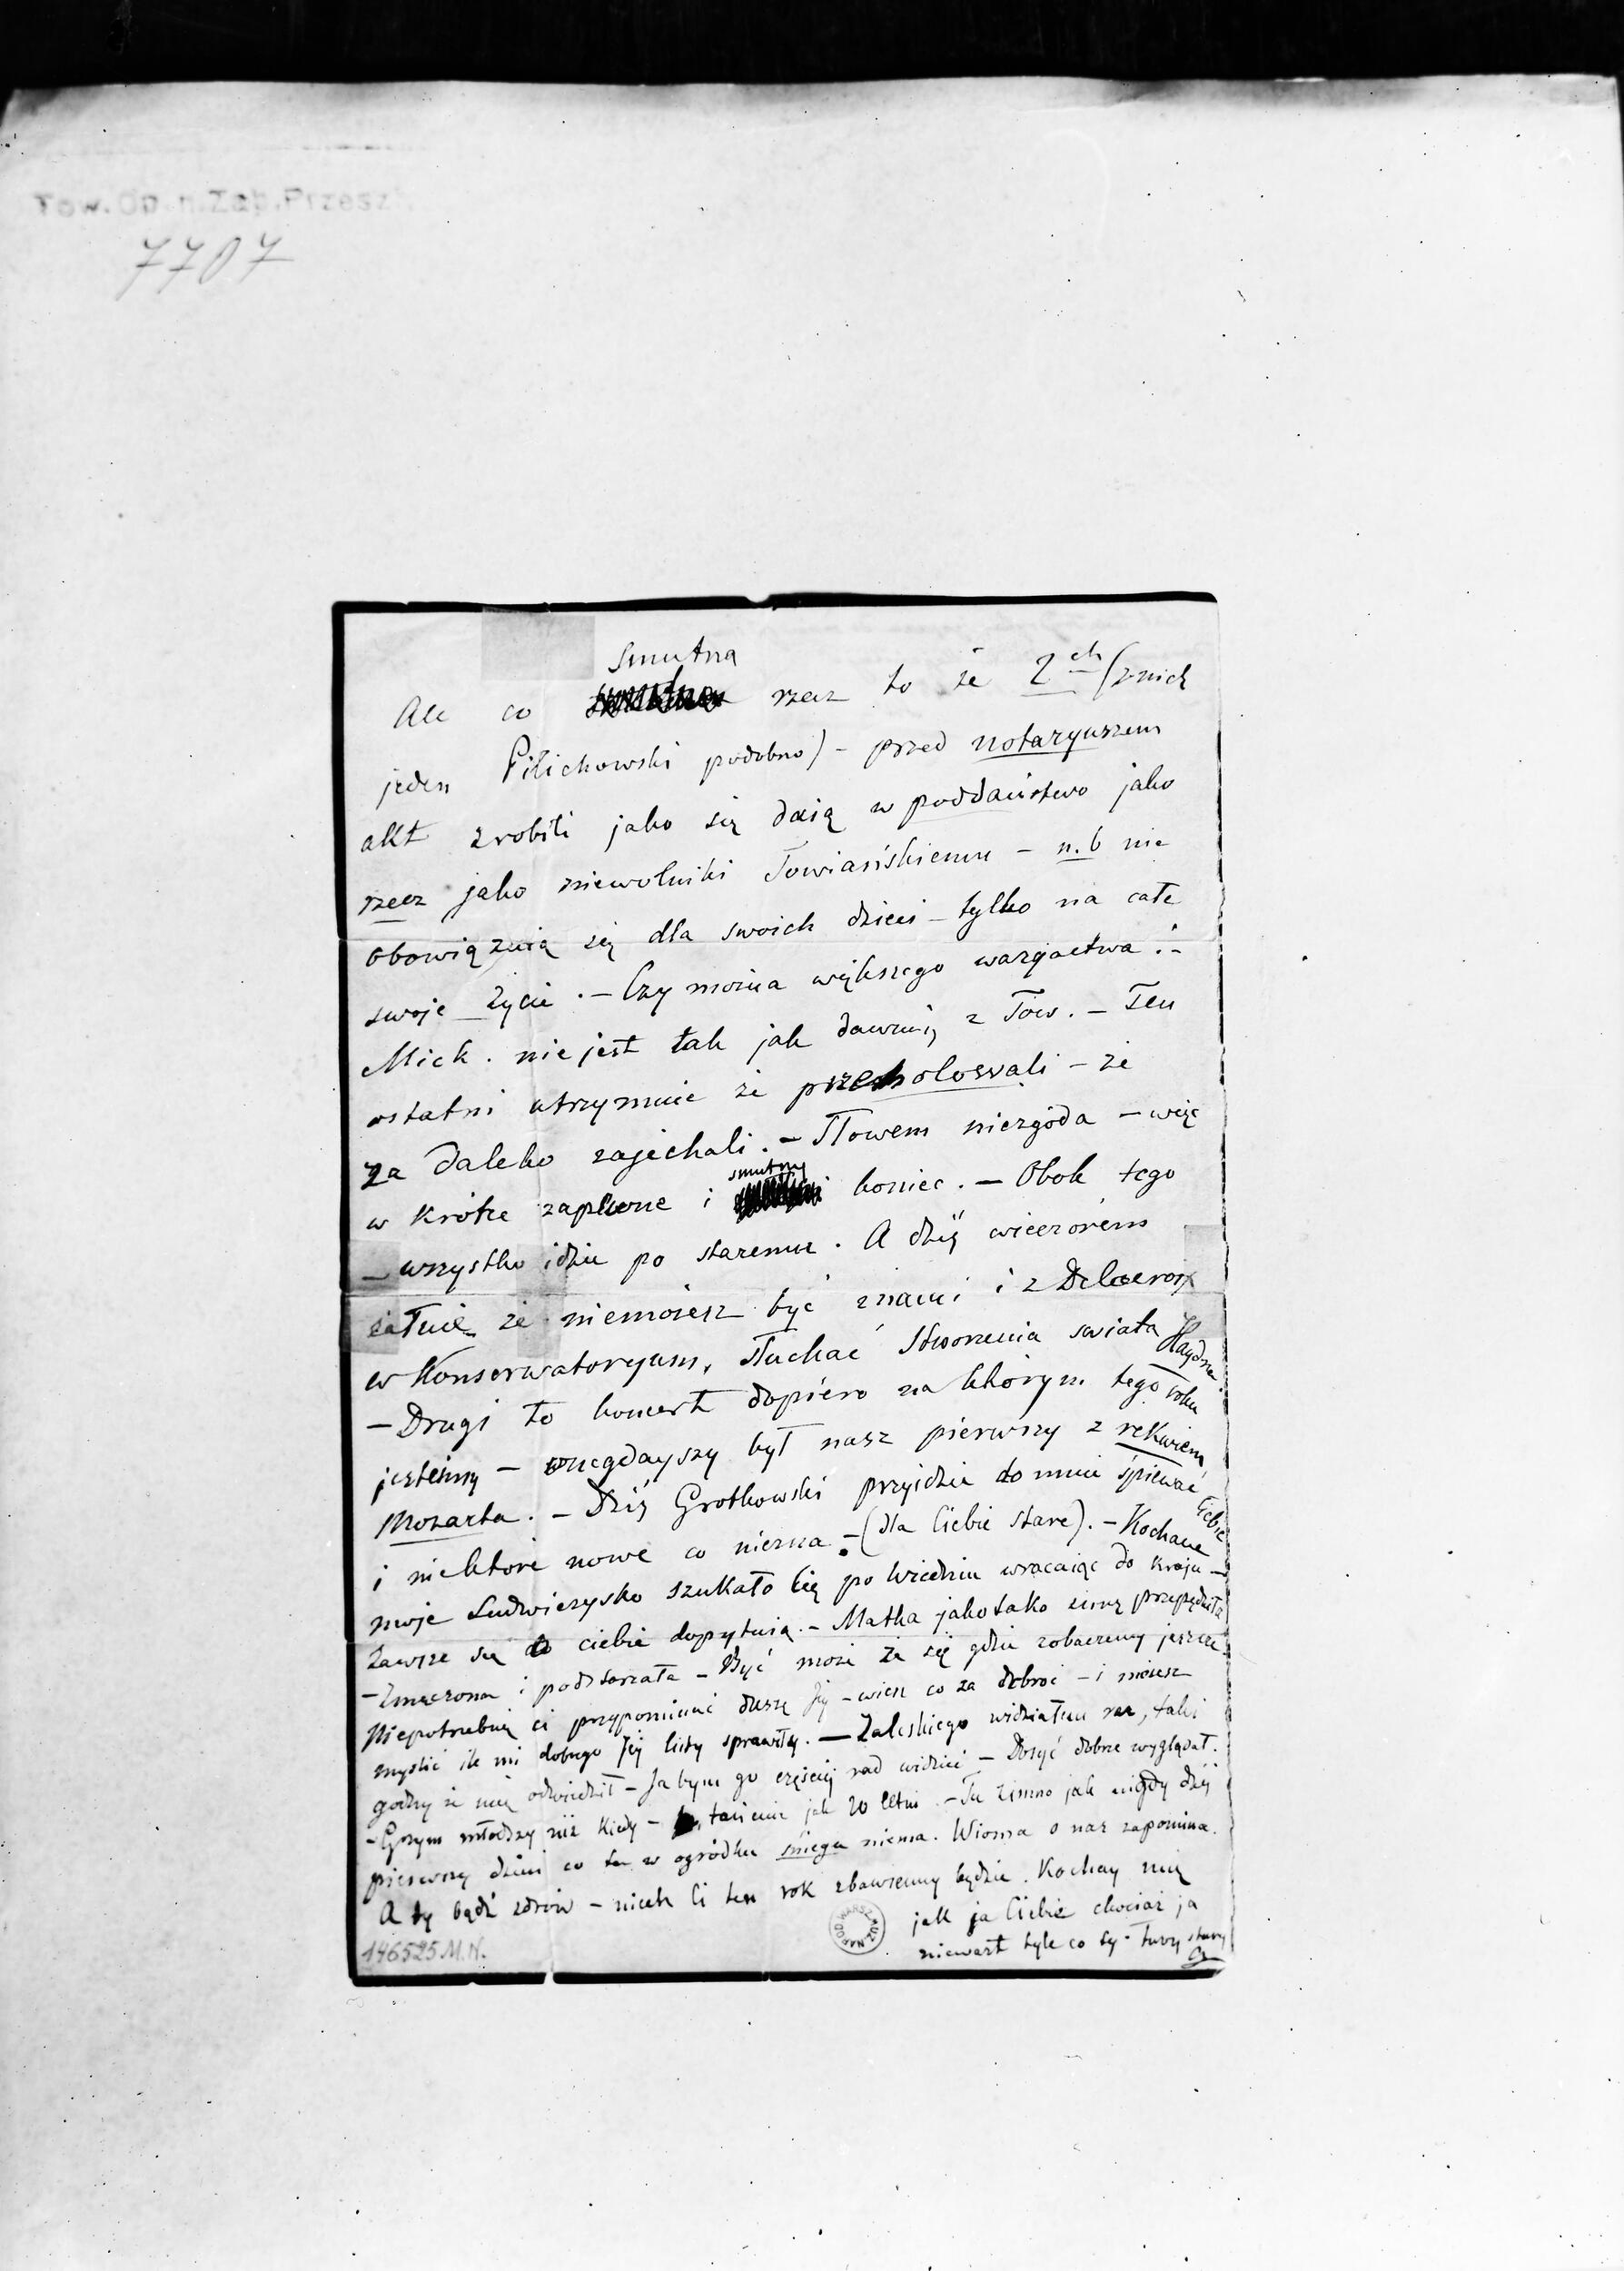 Tow. Op. n. Zab. Przesz
7707
smutna
Ale co rzecz to że 2ch (z nich
jeden Pilichowski podobno) - przed notaryuszem
akt zrobili jako się daią w poddaństwo jako
rzecz jako niewolniki Towiańskiemu - n.b nie
obowiązuią się dla swoich dzieci - tylko na całe
swoje życie. - Czy można większego waryactwa. -
Mick. nie jest tak jak dawniej z Tow. - Ten
ostatni utrzymuie że przeholowali - że
za daleko zajechali. - Słowem niezgoda - więc
smutny
w krótce zapewne i koniec. - Obok tego
- wszystko idzie po staremu. A dziś wieczorem
żałuię że niemożesz być z nami i z Delacroix
w Konserwatoryum, słuchać Stworzenia swiata Haydna.
- Drugi to koncert dopiero na którym tego roku
jesteśmy - onegdayszy był nasz pierwszy z rekwiem
Mozarta. - Dziś Grotkowski przyidzie do mnie śpiewać
i niektóre nowe co niezna - (dla Ciebie stare). - Kochane Ciebie
moje Ludwiczysko szukało Cię po Wiedniu wracaiąc do kraju -
Zawsze się o ciebie dopytuią. - Matka jako tako zimę przepędziła
- Zmęczona i podstarzała - Być może że się gdzie zobaczemy jeszcze -
Niepotrzebuię ci przypominać duszę Jej - wiesz co za dobroć - i możesz
myslić ile mi dobrego Jej listy sprawiły. - Zaleskiego widziałem raz, taki
godny że mię odwiedził - Ja bym go częściej rad widzieć - Dosyć dobrze wyglądał.
- Grzym młodszy niż kiedy - tańcuie jak 20 letni. - Tu zimno jak nigdy dziś
pierwszy dzień co tu w ogródku śniegu niema. Wiosna o nas zapomina.
A ty bądź zdrów - niech Ci ten rok zbawienny będzie. Kochay mię
jak ja Ciebie chociaż ja
niewart tyle co ty. Twoy stary
Ch
146525 M.N.